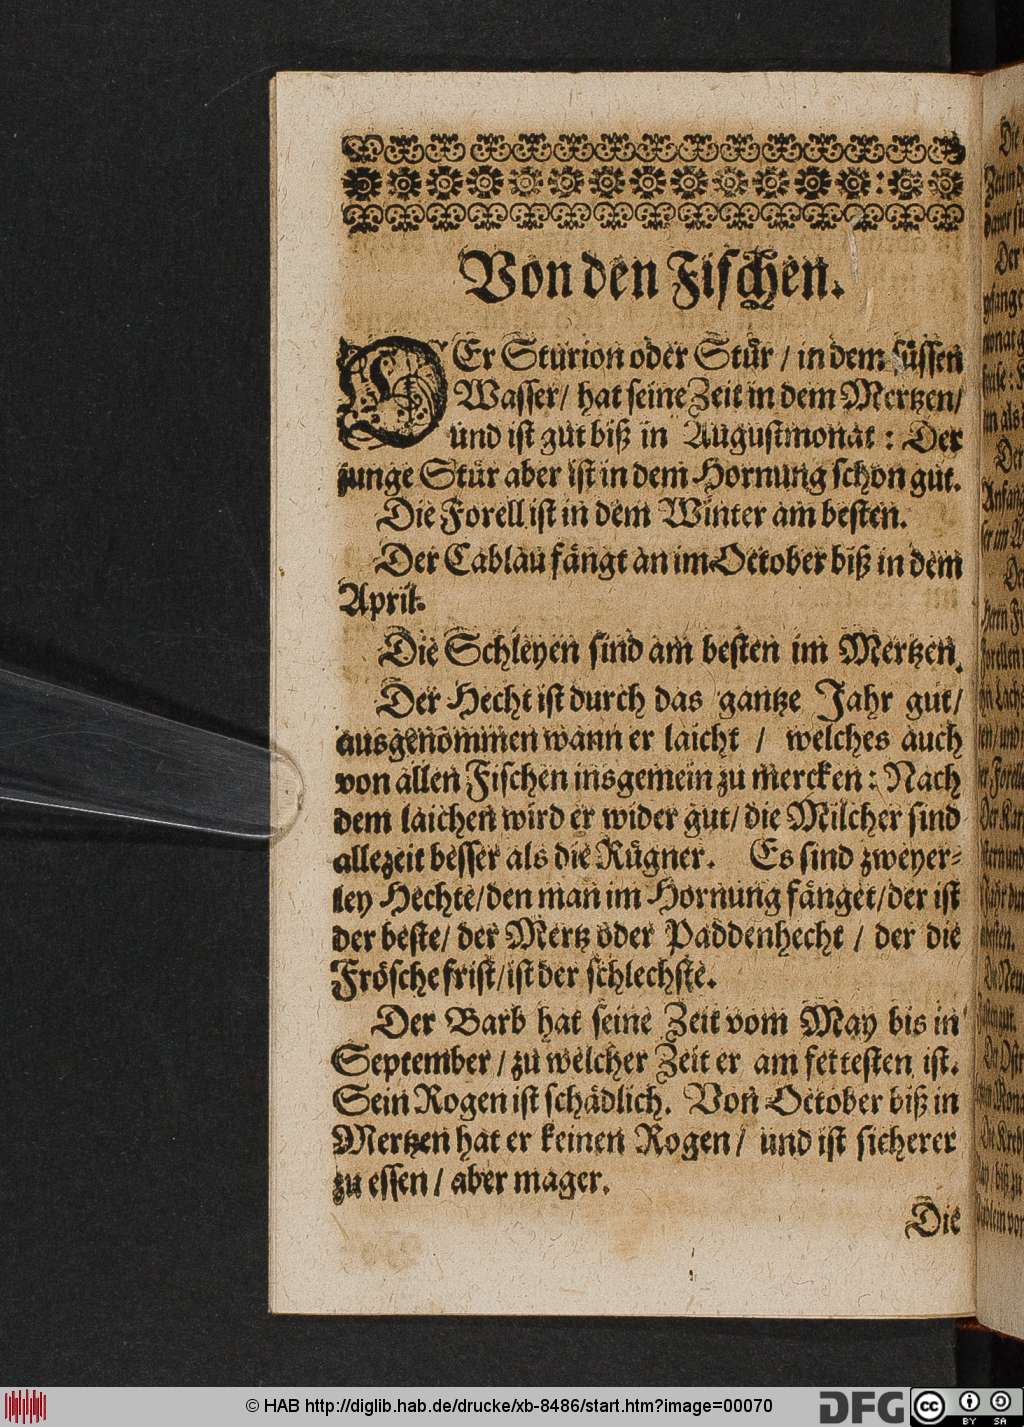 Von den Fischen.
DEr Sturion oder Stür / in dem süssen
Wasser / hat seine Zeit in dem Mertzen /
und ist gut biß in Augustmonat : Der
junge Stür aber ist in dem Hornung schon gut.
Die Forell ist in dem Winter am besten.
Der Cablau fängt an im October biß in dem
April.
Die Schleyen sind am besten im Mertzen.
Der Hecht ist durch das gantze Jahr gut /
ausgenommen wann er laicht / welches auch
von allen Fischen insgemein zu mercken : Nach
dem laichen wird er wider gut / die Milcher sind
allezeit besser als die Rügner. Es sind zweyer-
ley Hechte / den man im Hornung fänget / der ist
der beste / der Mertz oder Paddenhecht / der die
Frösche frist / ist der schlechste.
Der Barb hat seine Zeit vom May bis in
September / zu welcher Zeit er am fettesten ist.
Sein Rogen ist schädlich. Von October biß in
Mertzen hat er keinen Rogen / und ist sicherer
zu essen / aber mager.
Die
© HAB http://diglib.hab.de/drucke/xb-8486/start.htm?image=00070
DFG
cc
BY SA